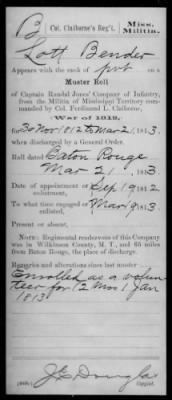 B
Col. Claiborne's Reg't.
Miss. Militia.
Lott Bender
Appears with the rank of pvt on a
Muster Roll
of Captain Randal Jones' Company of Infantry,
from the Militia of Mississippi Territory commanded
by Col. Ferdinand L. Claiborne,
(War of 1812,)
for 30 Nov 1812 to Mar 2, 1813,
when discharged by a General Order.
Roll dated Baton Rouge
Mar 2, 1813
Date of appointment or enlistment, Sep 19, 1812
To what time engaged or enlisted, Mar 19, 1813
Present or absent,
NOTE: Regimental rendezvous of this Company
was in Wilkinson County, M. T., and 65 miles
from Baton Rouge, the place of discharge.
Remarks and alterations since last muster
Enrolled as a volun
teer for 12 mos 1 Jan
1813
J. E. Douglas
Copyist.